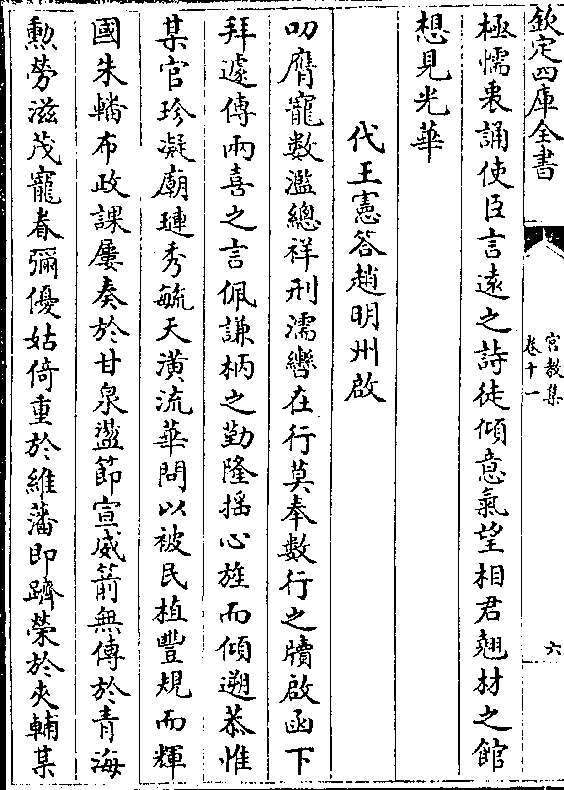 欽定四庫全書
宮教集
卷十一
六
極懦衷誦使臣言遠之詩徒傾意氣望相君翹材之館
想見光華
代王憲答趙明州啟
叨膺寵數濫總祥刑濡轡在行莫奉數行之牘啟函下
拜遽傳兩喜之言佩謙柄之勤隆揺心旌而傾遡恭惟
某官珍凝廟璉秀毓天潢流華問以被民植豐規而輝
國朱轓布政課屢奏於甘泉盪節宣威箭無傳於青海
勲勞滋茂寵眷彌優姑倚重於維藩即躋榮於夾輔某